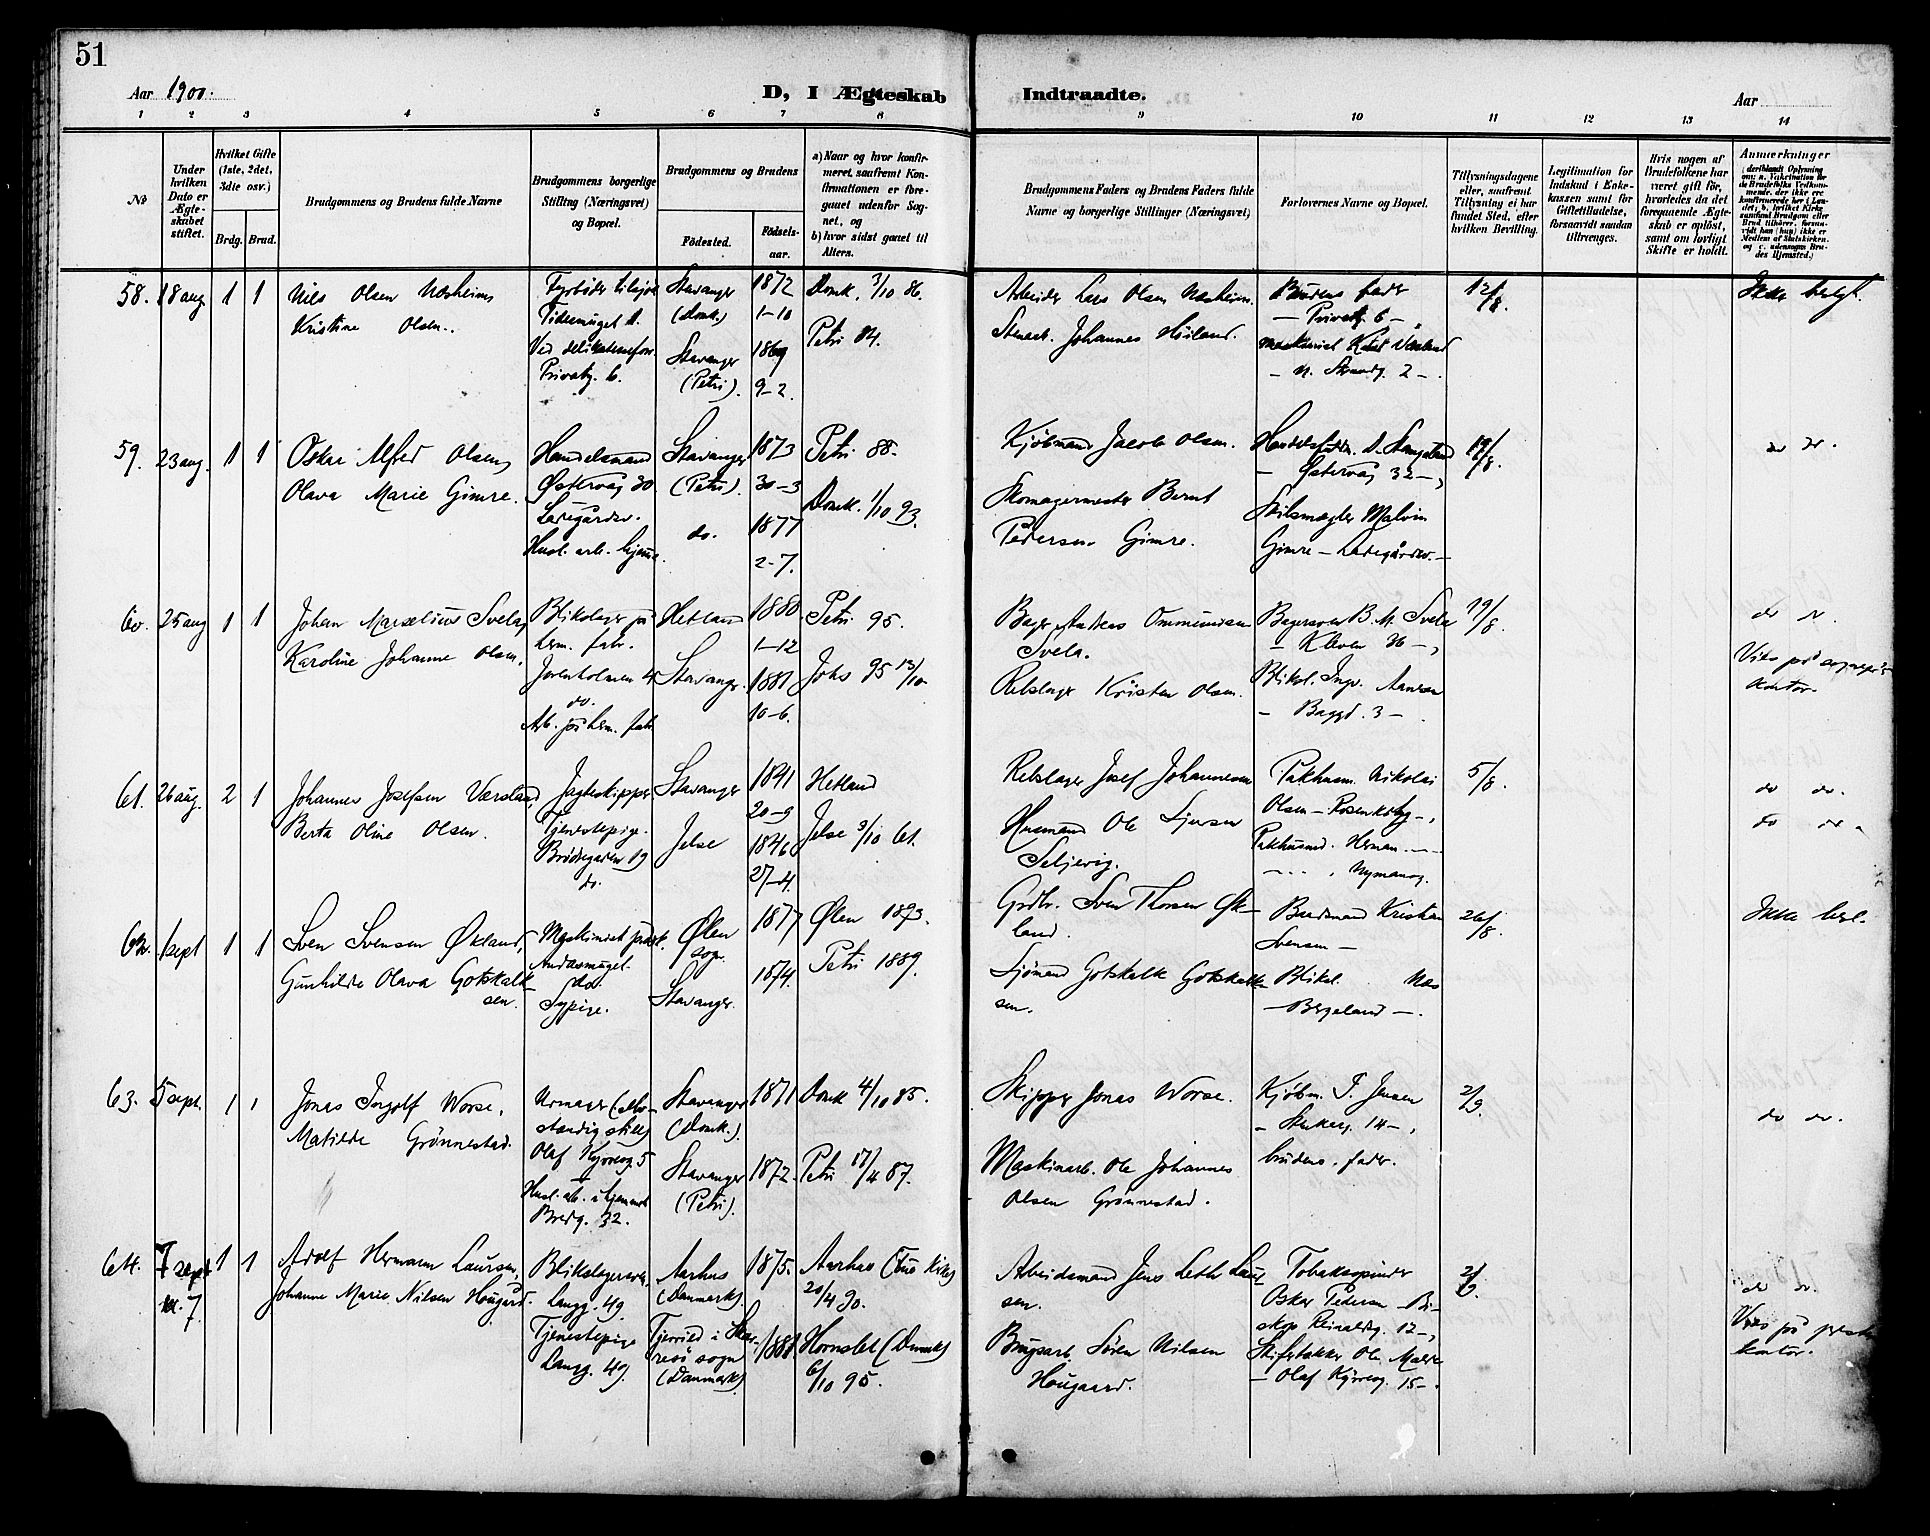 51
Aar 1900.
D, I Ægteskab Indtraadte.
Aar
1 2 3 4 5 6 7 8 9 10 11 12 13 14
No
Under hvilken Dato er Ægteskabet stiftet.
Hvilket Gifte (1ste, 2det, 3die osv.)
Brdg. Brud.
Brudgommens og Brudens fulde Navne
Brudgommens borgerlige Stilling (Næringsvei) og Bopæl.
Brudgommens og Brudens
Fødested.
Fødselsaar.
a) Naar og hvor konfirmeret, saafremt Konfirmationen er foregaaet udenfor Sognet, og
b) hvor sidst gaaet til Alters.
Brudgommens Faders og Brudens Faders fulde Navne og borgerlige Stillinger (Næringsvei)
Forlovernes Navne og Bopæl.
Tillysningsdagene eller, saafremt Tillysning ei har fundet Sted, efter hvilken Bevilling.
Legitimation for Indskud i Enkekassen samt for Giftetilladelse, forsaavidt saadan tiltrænges.
Hvis nogen af Brudefolkene har været gift før, hvorledes da det foregaaende Ægteskab er opløst, samt om lovligt Skifte er holdt.
Anmerkninger
58. 18 aug. 1 1
Nils Olsen Næsheim
Kristine Olsen.
Fyrbøder tilsjøs
Ved
Privatg. 6.
Stavanger
(Domk.)
Stavanger
(Petri).
1872
1-10
1869
9-2.
Domk. 3/10 86.
Petri 84.
Arbeider Lars Olsen Næsheim.
Stenarb. Johannes Høiland.
Brudens fader
- Privatg. 6 -,
- N. Strandg. 2 -.
12/8.
Ikke besl.
59. 23 aug. 1 1
Oskar Alfred Olsen,
Olava Marie Gimre.
Handelsmand
Østervåg 30
Ladegårdsv.
Husl. arb. hjemme.
Stavanger
(Petri).
do.
1873
30-3
1877
2-7.
Petri 88.
Domk. 1/10 93.
Kjøbmand Jacob Olsen.
Skomagermester Bernt
Pedersen Gimre.
- Østervåg 32 -,
Skibsmægler Malvin
Gimre - Ladegårdsv. -
19/8.
do do.
60. 25 aug 1 1
Johan Marselius Svela,
Karoline Johanne Olsen.
Blikslager på
herm. fabr.
Jorenholmen 4
do.
Arb. på herm. fabr.
Hetland
Stavanger.
1880.
1-12
1881
10-6.
Petri 95.
Johs 95 13/10
Bager Andreas Ommundsen
Svela.
Rebslager Kristen Olsen.
Bagersvend B. M. Svela
- Kleven 36 -,
Bliksl. Ingv. Aanesen
- Bagged. 3 -.
19/8.
do do.
Vies på sogneprs.
kontor.
61. 26 aug. 2 1
Johannes Josefsen Værsland,
Berta Oline Olsen.
Jagteskipper
Tjenestepige.
Brødregaden 19
do.
Stavanger
Jelse
1841
20-9
1846
27-4.
Hetland
Jelse 3/10 61.
Rebslager Josef Johannesen
Husmand Ole Sjursen
Seljevig.
Pakhusm. Nikolai
Olsen - Rosenkildeg -,
Pakhusmd. Herman -
- - -, Nymansg.
5/8.
do do.
do do.
62. 1 sept 1 1
Sven Svensen Økland,
Gunhilde Olava Gotskalk-
sen.
Maskinist
Andasmauget.
do.
Sypige.
Ølen
sogn.
Stavanger.
1877
1874.
Ølen 1893.
Petri 1889.
Grdbr. Sven Thorsen Øk-
land.
Sjømand Gotskalk Gotskalk-
sen.
Kristian
Svensen -
Bliksl. Næs
- Bergeland -.
26/8.
Ikke besl.
63. 5 sept. 1 1
Jonas Ingolf Worse,
Matilde Grønnestad.
Urmager (selv-
stændig still.)
Olaf Kyrresg. 5
Husl. arb. i hjemmet
Bredg. 32.
Stavanger
(Domk.).
Stavanger
(Petri).
1871
1872.
Domk 4/10 85.
Petri 17/4 87.
Skipper Jonas Worse.
Maskinarb. Ole Johannes
Olsen Grønnestad.
Kjøbm. T. Jensen
14 -,
brudens fader.
2/9.
do do.
64. 7 sept 1 1
kl. 7.
Adolf Hermann Laursen,
Johanne Marie Nilsen Hougård.
Blikslagersv.
Langg. 49.
Tjenestepige
Langg. 49.
Aarhus
(Danmark)
sogn
(Danmark)
1875.
1881.
Aarhus
20/4 90.
Hornslet (Danmark)
6/10 95.
Arbeidsmand Jens Leth Laur-
sen.
Brugsarb. Søren Nilsen
Hougaard.
Tobakspinder
Oskar Pedersen - Bi-
skop Reinaldsg. 12 -,
Ole Malde
- Olaf Kyrresg. 15 -.
2/9.
do do.
Vies på prestens
kontor.